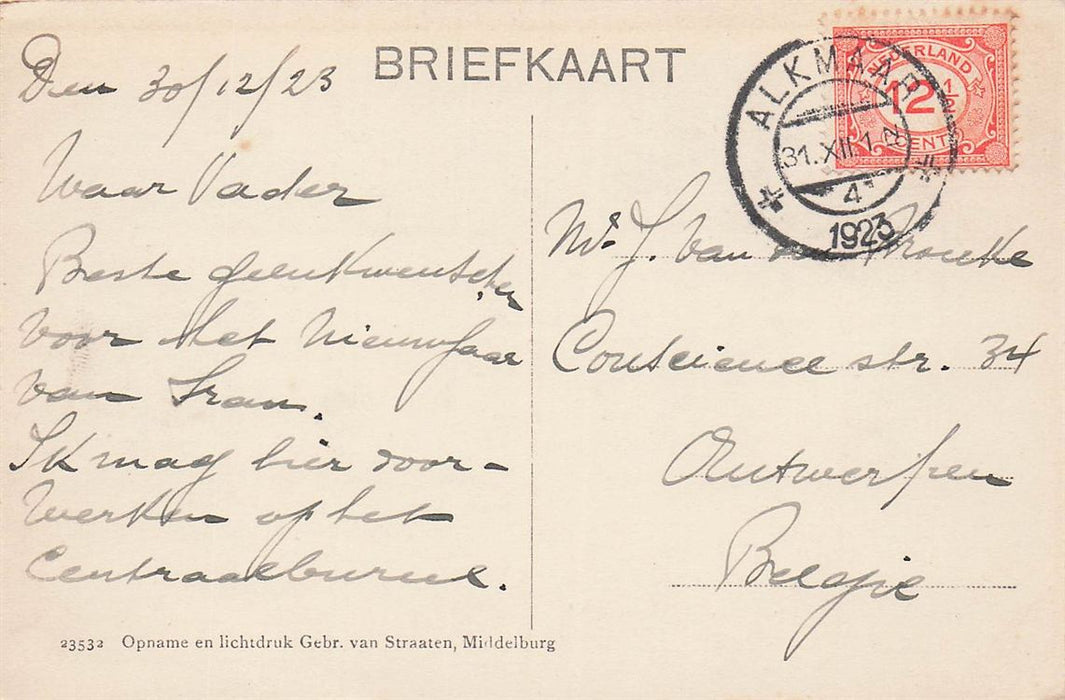 BRIEFKAART
Den 30/12/23
Waar Vader
Beste
voor het Nieuwjaar
van Fran.
Ik mag hier door-
werken op het
Centraalbureel.
23532 Opname en lichtdruk Gebr. van Straaten, Middelburg
NEDERLAND
12 1/2
CENT
ALKMAAR
31.XII 1
4
1923
Mr. J. Van
Conscience str. 34
Antwerpen
België